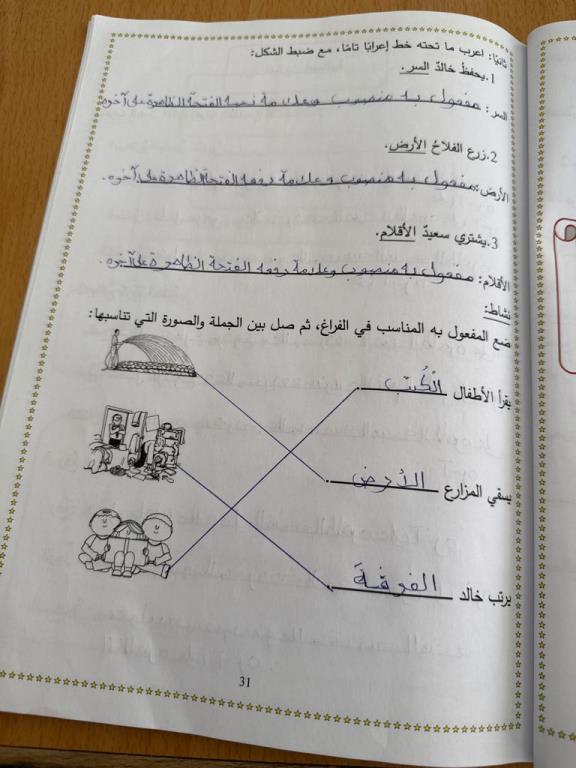 ثانيًا: اعرب ما تحته خط إعرابًا تامًا، مع ضبط الشكل:
1.يحفظُ خالدٌ السر.
السر: مفعول به منصوب وعلامة نصبه الفتحة الظاهرة على آخره
2.زرع الفلاحُ الأرض.
الأرض: مفعول به منصوب وعلامة رفعه الفتحة الظاهرة على آخره.
3.يشتري سعيدٌ الأقلام.
الأقلام: مفعول به منصوب وعلامة رفعه الفتحة الظاهرة على آخره.
نشاط:
ضع المفعول به المناسب في الفراغ، ثم صل بين الجملة والصورة التي تناسبها:
يقرأ الأطفال الْكُتبَ.
يسقي المزارع الأرضَ.
يرتب خالد الغرفةَ.
31